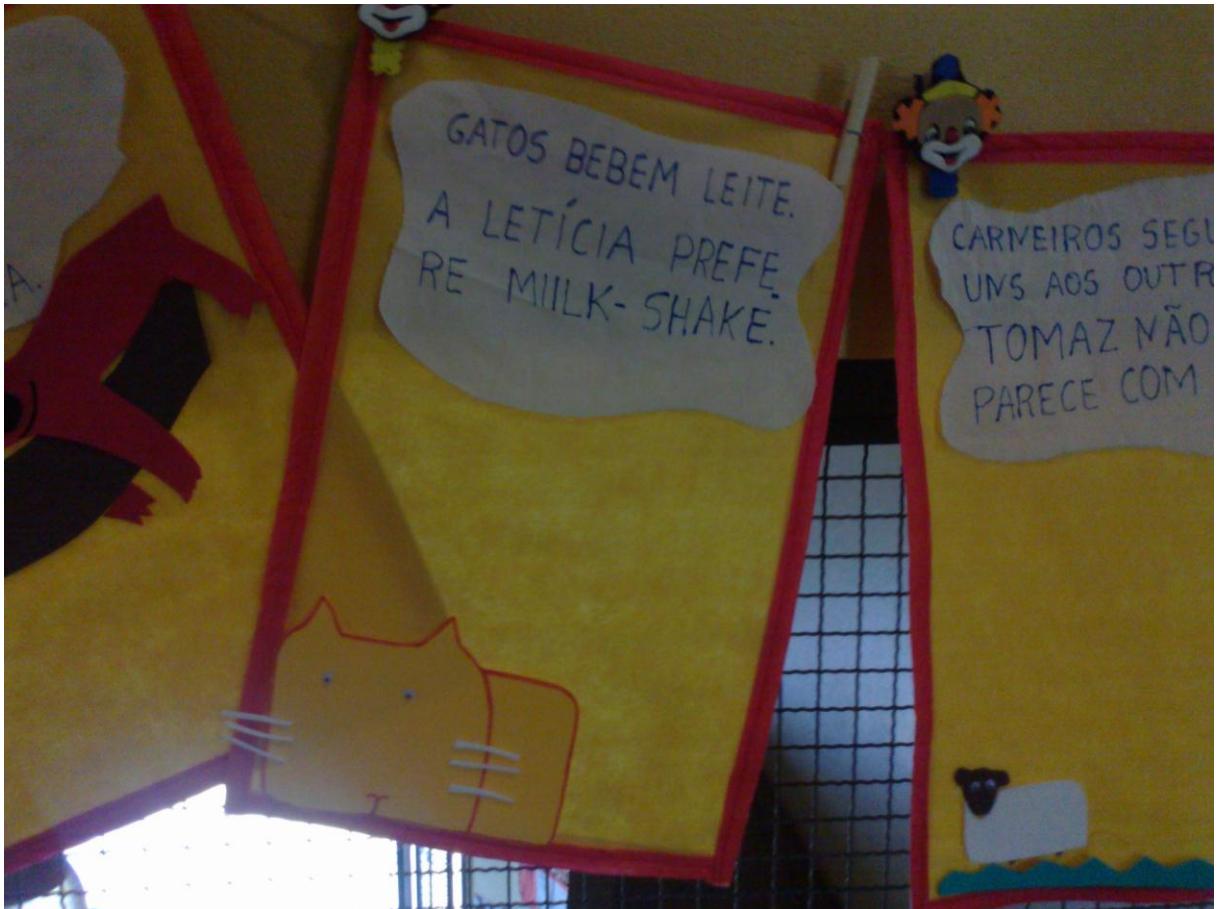 A.
GATOS BEBEM LEITE.
A LETÍCIA PREFE
RE MIILK-SHAKE.
CARNEIROS SEGU
UNS AOS OUTR
TOMAZ NÃO
PARECE COM